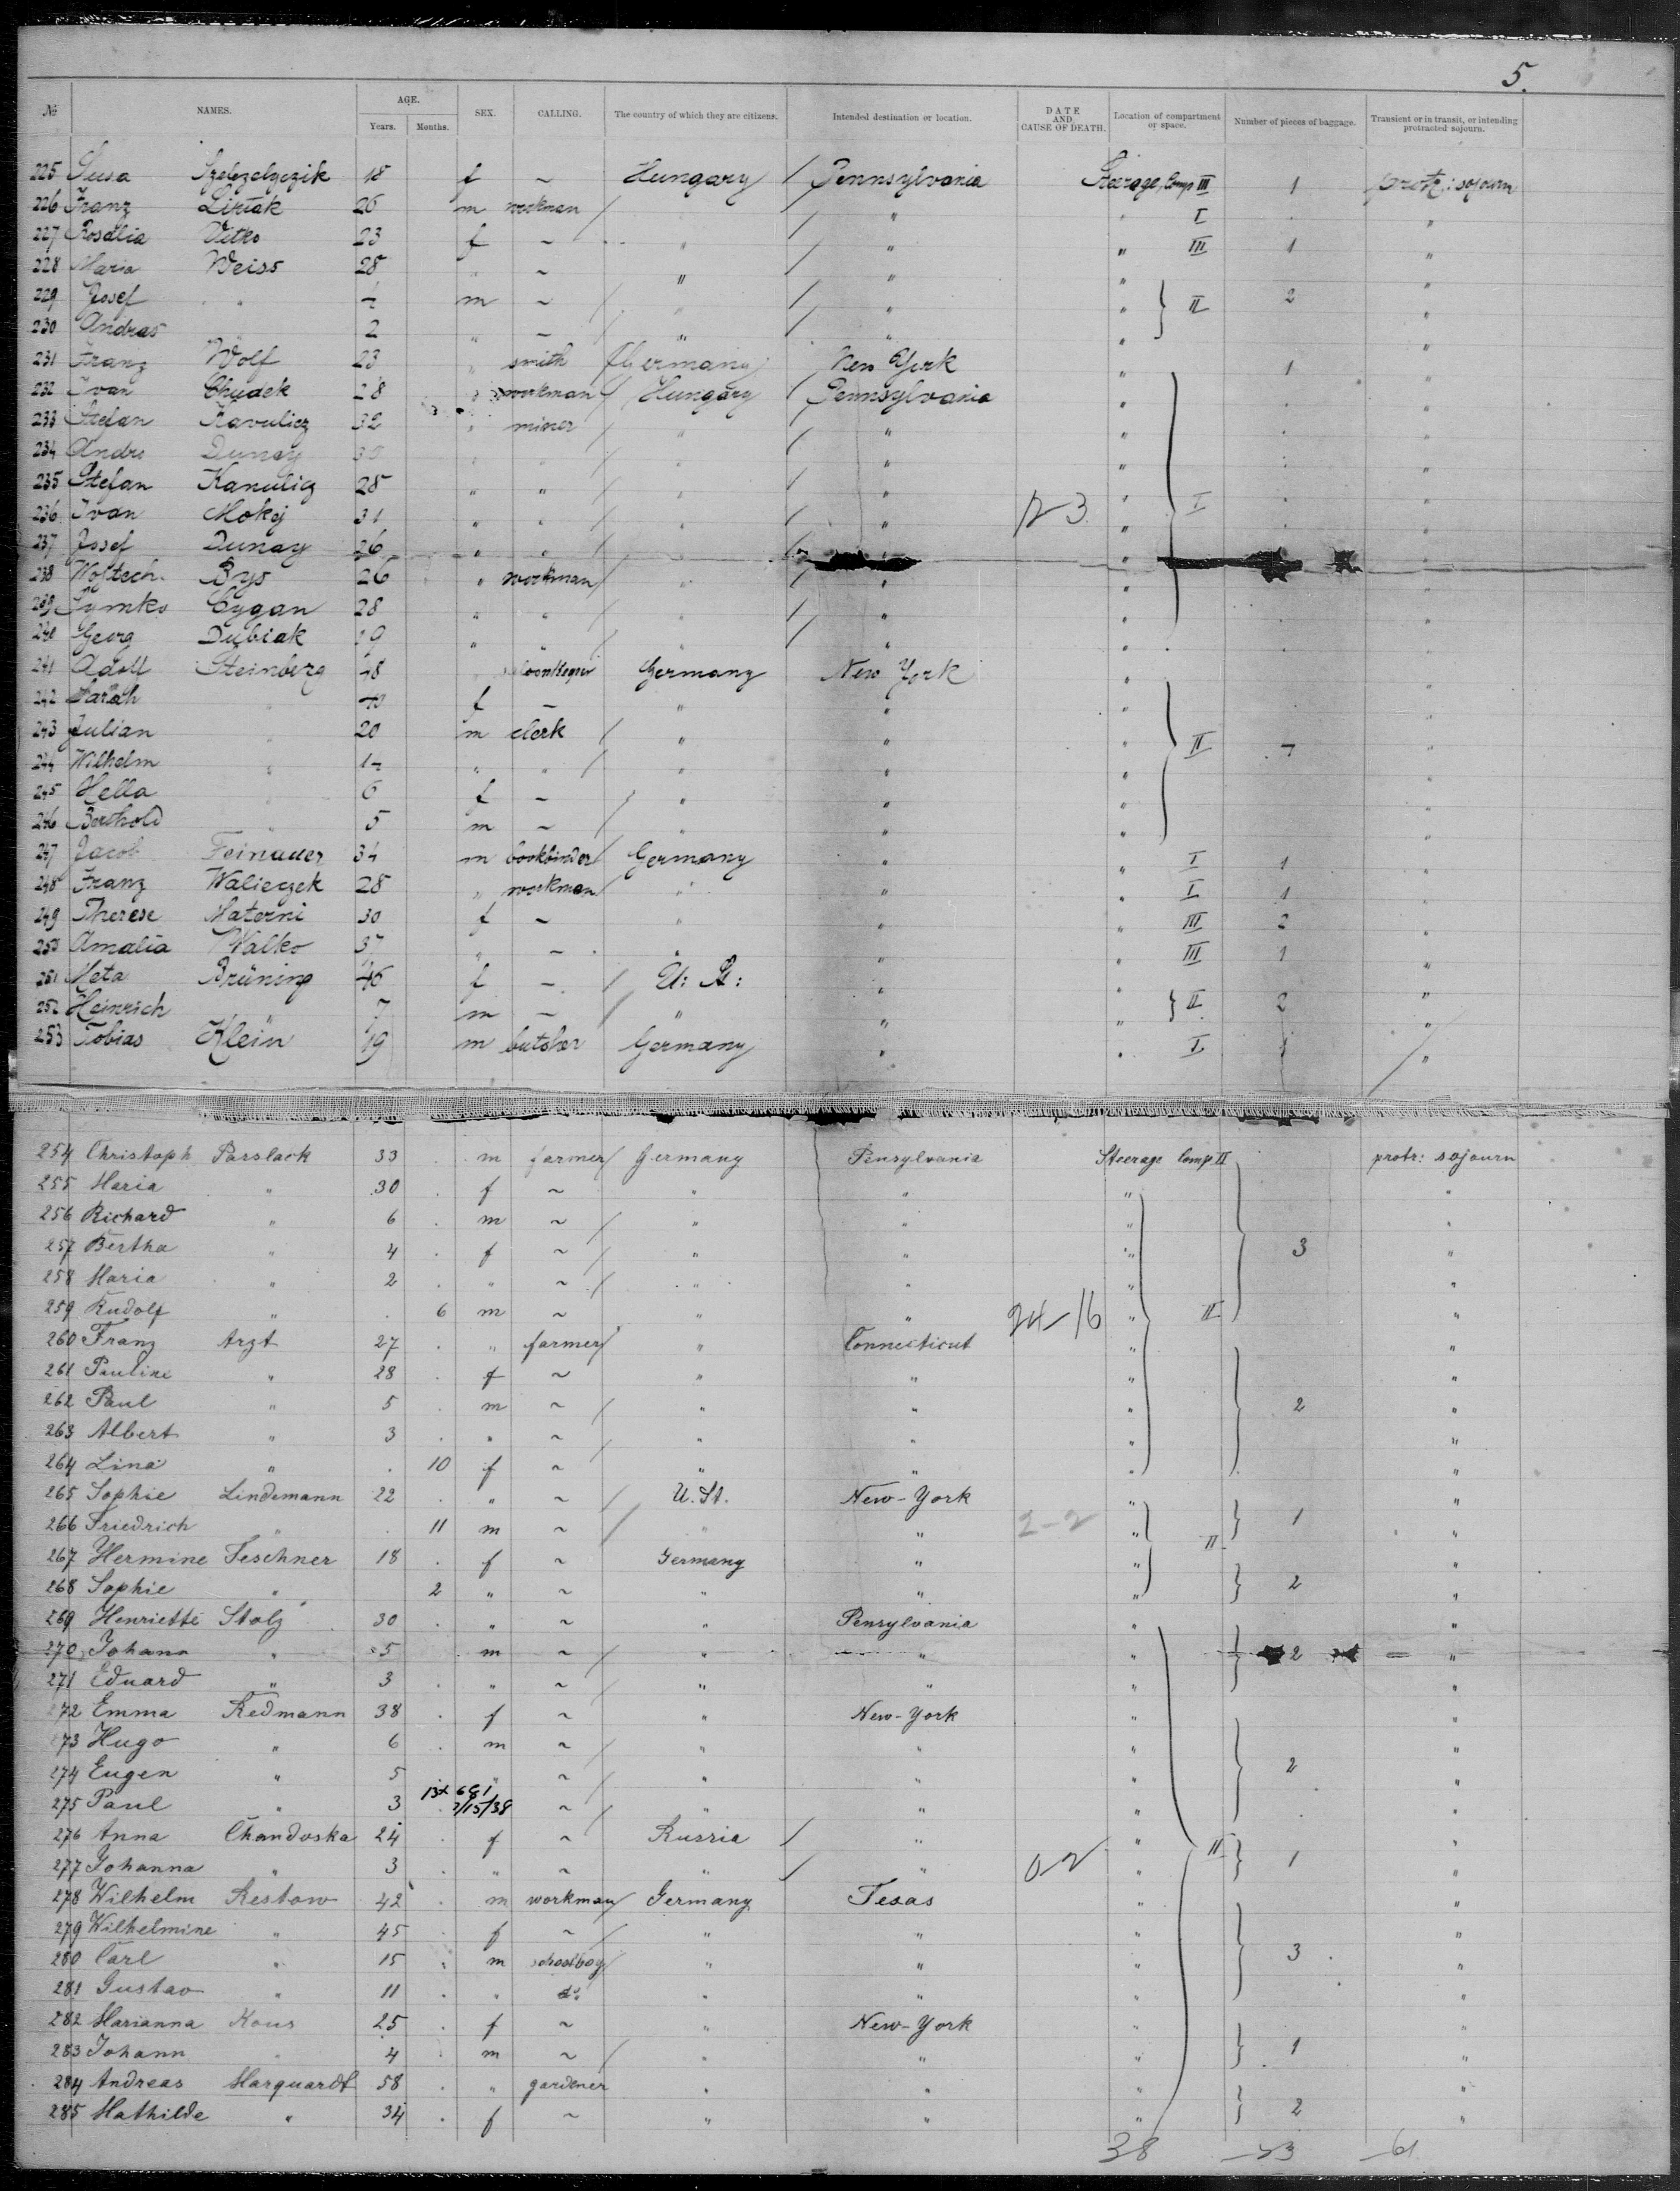 5.
№ NAMES. AGE. Years. Months. SEX. CALLING. The country of which they are citizens. Intended destination or location. DATE AND CAUSE OF DEATH. Location of compartment or space. Number of pieces of baggage. Transient or in transit, or intending protracted sojourn.
225 Susa 18 f ~ Hungary / Pennsylvania Steerage, Comp III 1 protr: sojourn
226 Franz 26 m workman / " / " " I " "
227 Rosalia Vitko 23 f ~ " / " " III 1 "
228 Maria Weiss 28 " ~ " " " "
229 Josef " m ~ / " / " " } II 2 "
230 Andras " 2 " ~ / " / " " "
231 Franz Wolf 23 " smith / Germany New York " 1 "
232 Ivan Chudek 28 " workman / Hungary / Pennsylvania " " "
233 Stefan 32 " miner / " / " " " "
234 Dunay " " / " / " " " "
235 Stefan Kanulicz 28 " " / " / " " " "
236 Ivan Mokej 31 " " / " / " 12-3 " I " "
237 Josef Dunay 26 " " / " / " " " "
238 Bys 26 " workman / " / " " " "
239 Cygan 28 " " / " / " " " "
240 Georg Dubiak 19 " " / " / " " " "
241 Adolf Steinberg 48 Germany New York " "
242 Sarah " f ~ " " " "
243 Julian " 20 m clerk / " " " II 7 "
244 Wilhelm " 14 " " / " " " "
245 Hella " 6 f ~ / " " " "
246 Berthold " 5 m ~ / " " " "
247 Jacob Feinauer 34 m bookbinder / Germany " " I 1 "
248 Franz Walieczek 28 " workman / " " " I 1 "
249 Therese Materni 30 f ~ " " " III 2 "
250 Amalia Walko 37 " ~ " " " III 1 "
251 Meta Brüning 46 f ~ / U: St: " " } II 2 "
252 Heinrich " 7 m ~ / " " " "
253 Tobias Klein 19 m butcher Germany " " I 1 "
254 Christoph Parslack 33 m farmer / Germany Pensylvania Steerage Comp II protr: sojourn
255 Maria " 30 f ~ " " " "
256 Richard " 6 m ~ / " " " "
257 Bertha " 4 f ~ / " " " 3 "
258 Maria " 2 " ~ / " " " "
259 Rudolf " 6 m ~ " " 24-16 " II "
260 Franz Arzt 27 " farmer / " Connecticut " "
261 Pauline " 28 f ~ " " " "
262 Paul " 5 m ~ / " " " 2 "
263 Albert " 3 " ~ / " " " "
264 Lina " 10 f ~ " " " "
265 Sophie Lindemann 22 " ~ / U. St. New-York " "
266 Friedrich " 11 m ~ / " " 2-2 " II 1 "
267 Hermine Teschner 18 f ~ Germany " " "
268 Sophie " 2 " ~ " " " 2 "
269 Henriette Stolz 30 " ~ " Pensylvania " "
270 Johann " 5 m ~ / " " " 2 "
271 Eduard " 3 " ~ / " " " "
272 Emma Redmann 38 f ~ " New-York " "
273 Hugo " 6 m ~ / " " " "
274 Eugen " 5 " ~ / " " " 2 "
275 Paul " 3 13x681 2/15/38 ~ / " " " "
276 Anna Chandoska 24 f ~ Russia / " " II "
277 Johanna " 3 " ~ " / " 0-2 " 1 "
278 Wilhelm Restow 42 m workman / Germany Texas " "
279 Wilhelmine " 45 f ~ / " " " "
280 Carl " 15 m schoolboy / " " " 3 "
281 Gustav " 11 " do " " " "
282 Marianna Kous 25 f ~ " New-York " "
283 Johann " 4 m ~ / " " " 1 "
284 Andreas Marquardt 58 " gardener " " " "
285 Mathilde " 34 f ~ " " " 2 "
38 -23 -61